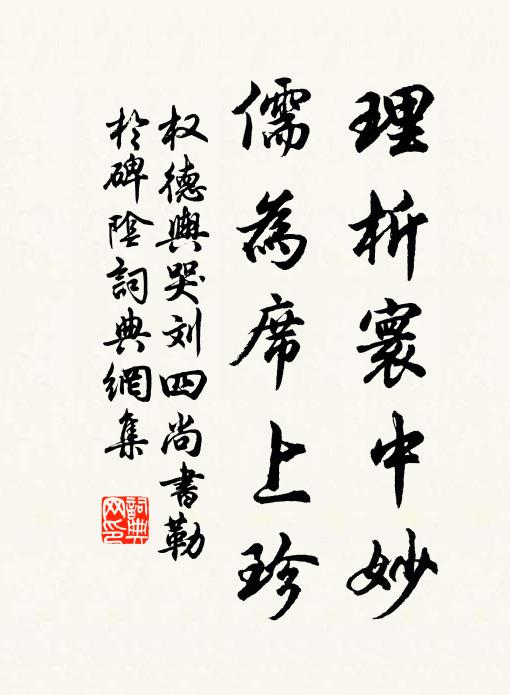 理析寰中妙
儒為席上珍
权德輿哭刘四尚書勒
於碑陰詞典網集
詞典
网印